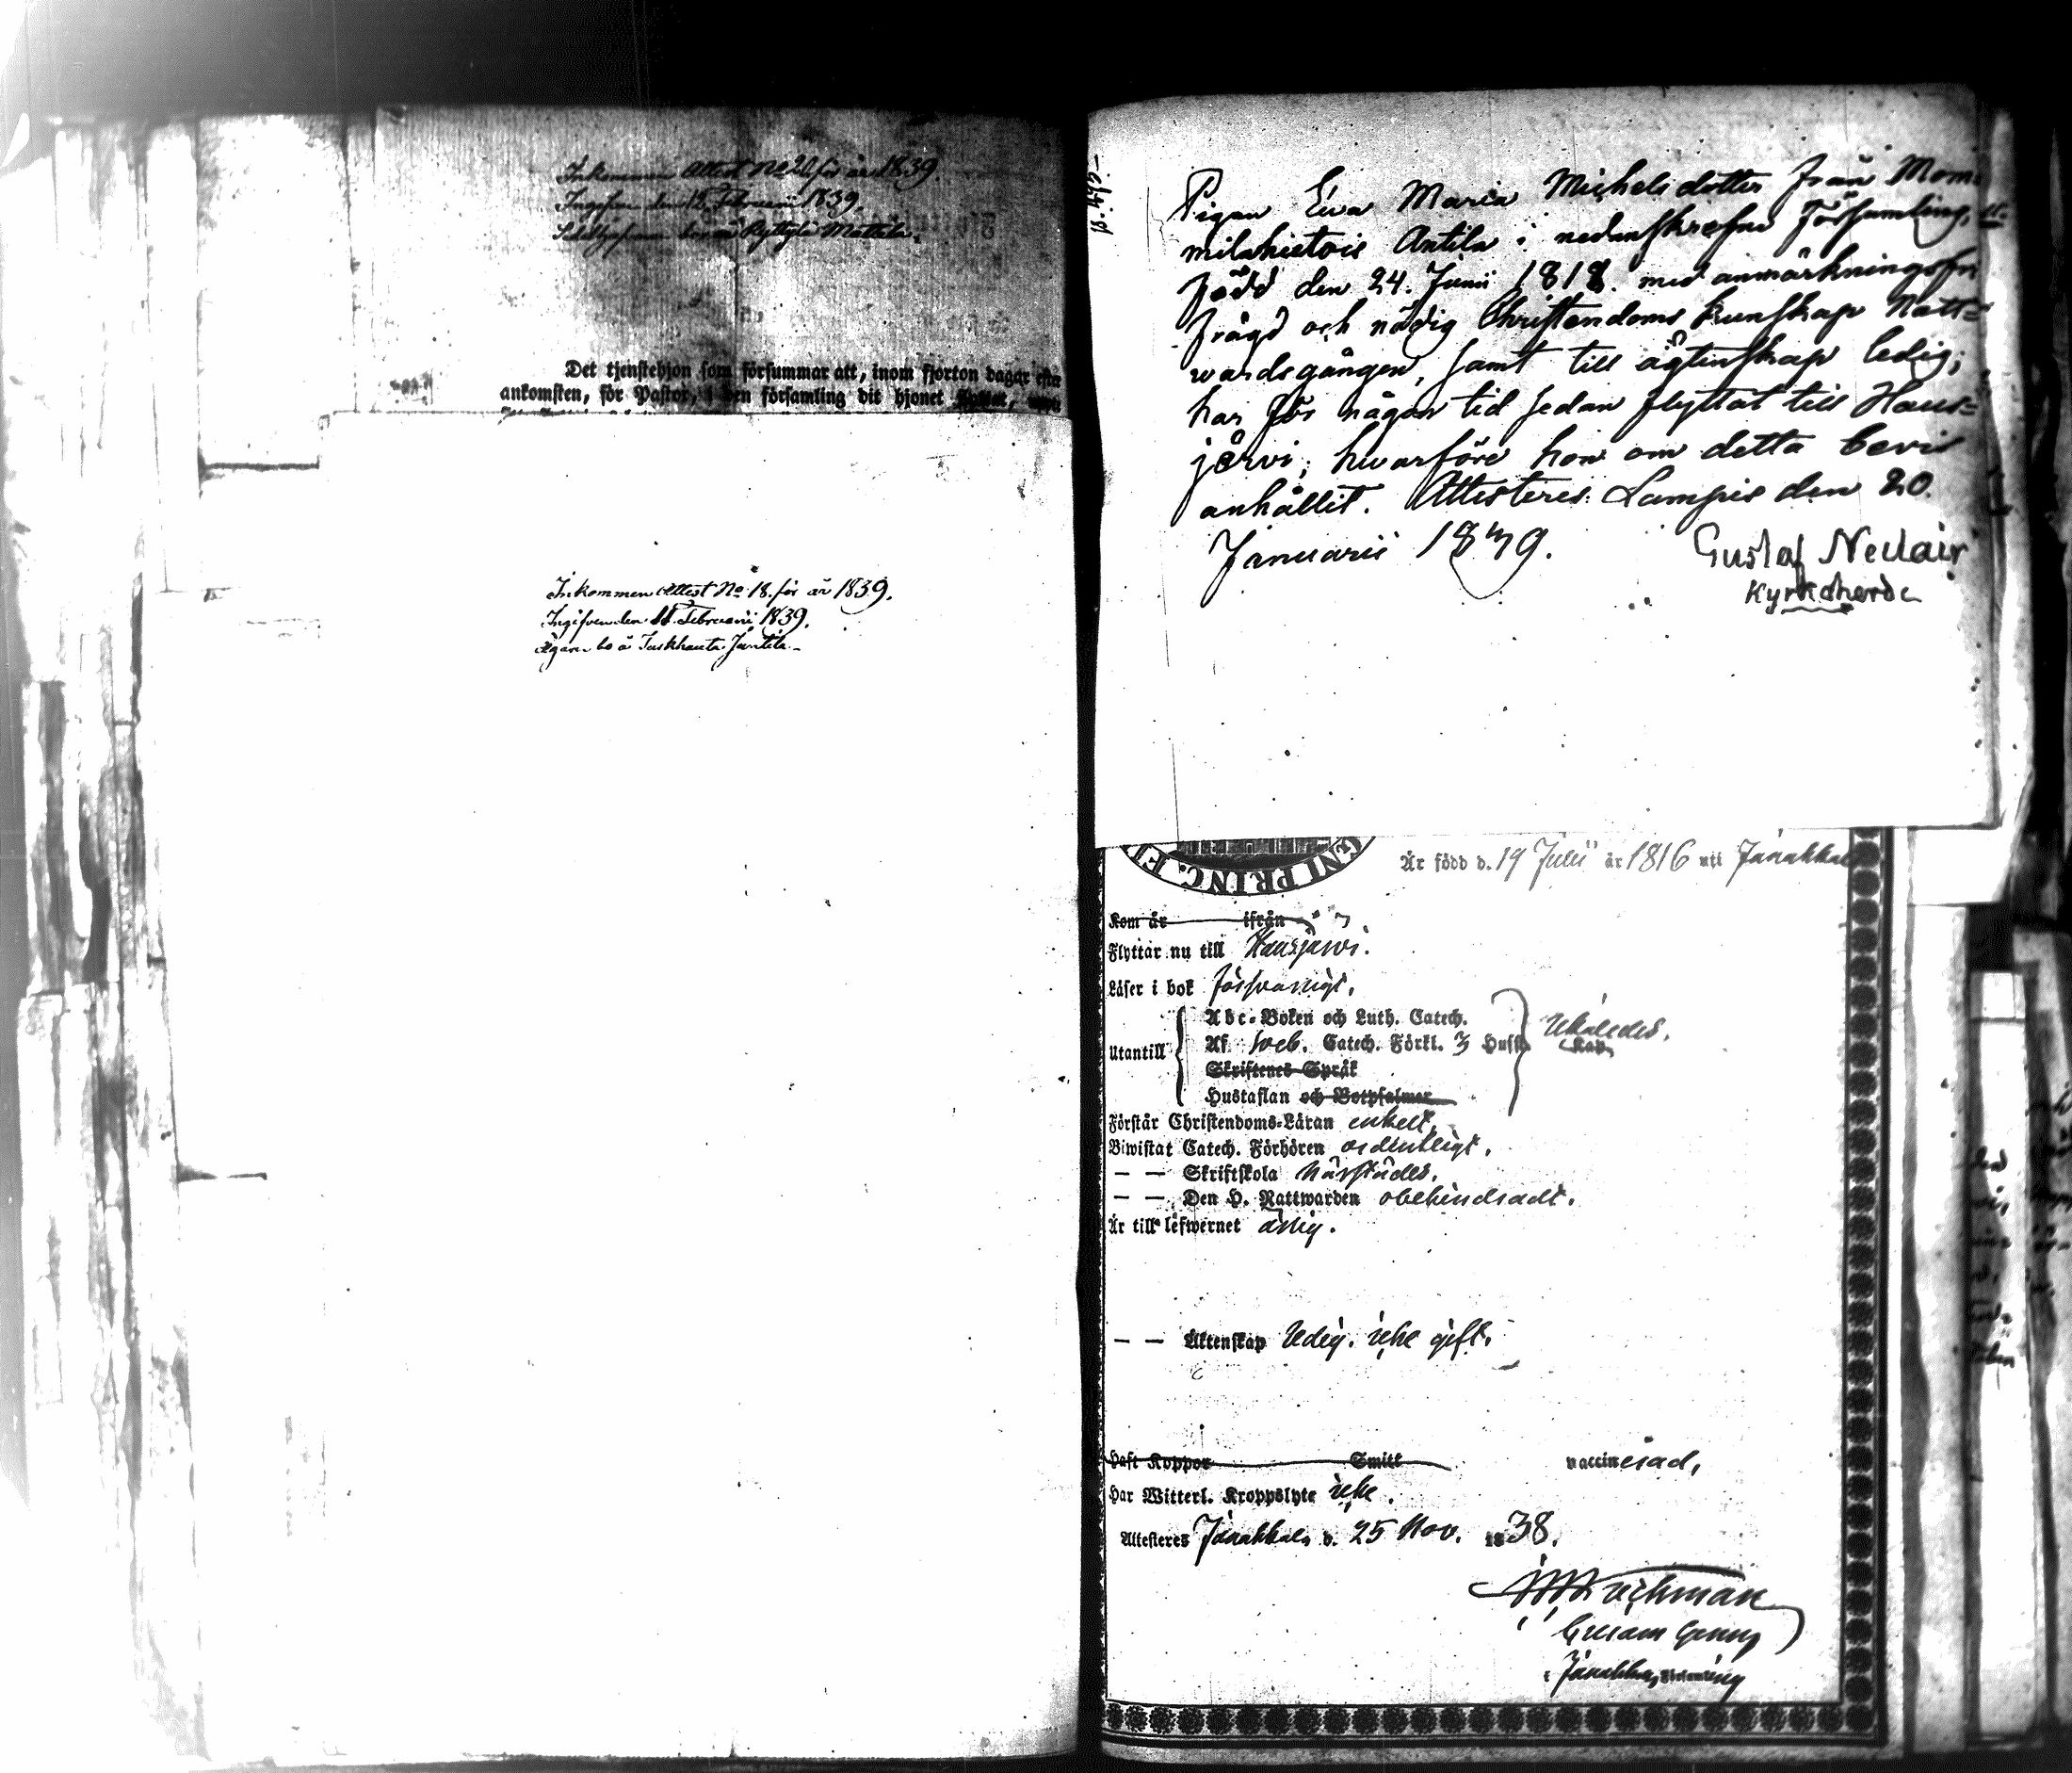 Inkommen Attest No 21 för år 1839.
Ingifven den 18 Februarii 1839.
bo å Ryttylä Mattila.
Det tjenstehjon som försummar att, inom fjorton dagar efter
ankomsten, för Pastor, i den församling dit hjonet
Inkommen Attest No 18. för år 1839.
Ingifven den 18 Februarii 1839.
Ägaren bo å Turkhauta Jantila.
Pigan Eva Maria Michelsdotter från Mom-
milahietois Antila i nedanskrefne Församling, är
född den 24. Junii 1818. med anmärkningsfri
frägd och nödig Christendoms kunskap Natt=
vardsgången, samt till ägtenskap ledig;
har för någon tid sedan flyttat till Haus=
järvi; hvarföre hon om detta bevis
anhållit. Attesteres. Lampis den 20.
Januarii 1839.
Gustaf Neclair
Kyrkoherde
GNI PRINC. FI
Är född d. 19 Julii år 1816 uti Janakkal
Kom år ifrån
Flyttar nu till Hausjärvi.
Läser i bok försvarligt.
Utantill
Abc-Boken och Luth. Catech.
Af Sveb. Catech. Förkl. 3 Hufst.
Kap
likaledes.
Skriftenes Språk
Hustaflan och Botpsalmer
Förstår Christendoms-Läran enkelt.
Biwistat Catech. Förhören ordentligt.
— — Skriftskola härstädes.
— — Den H. Nattwarden obehindradt.
Är till lefwernet ärlig.
— — Äktenskap ledig. icke gift.
Haft Koppor Smitt vaccinerad,
Har Witterl. Kroppslyte icke.
Attesteres Janakkala d. 25 Nov. 1838.